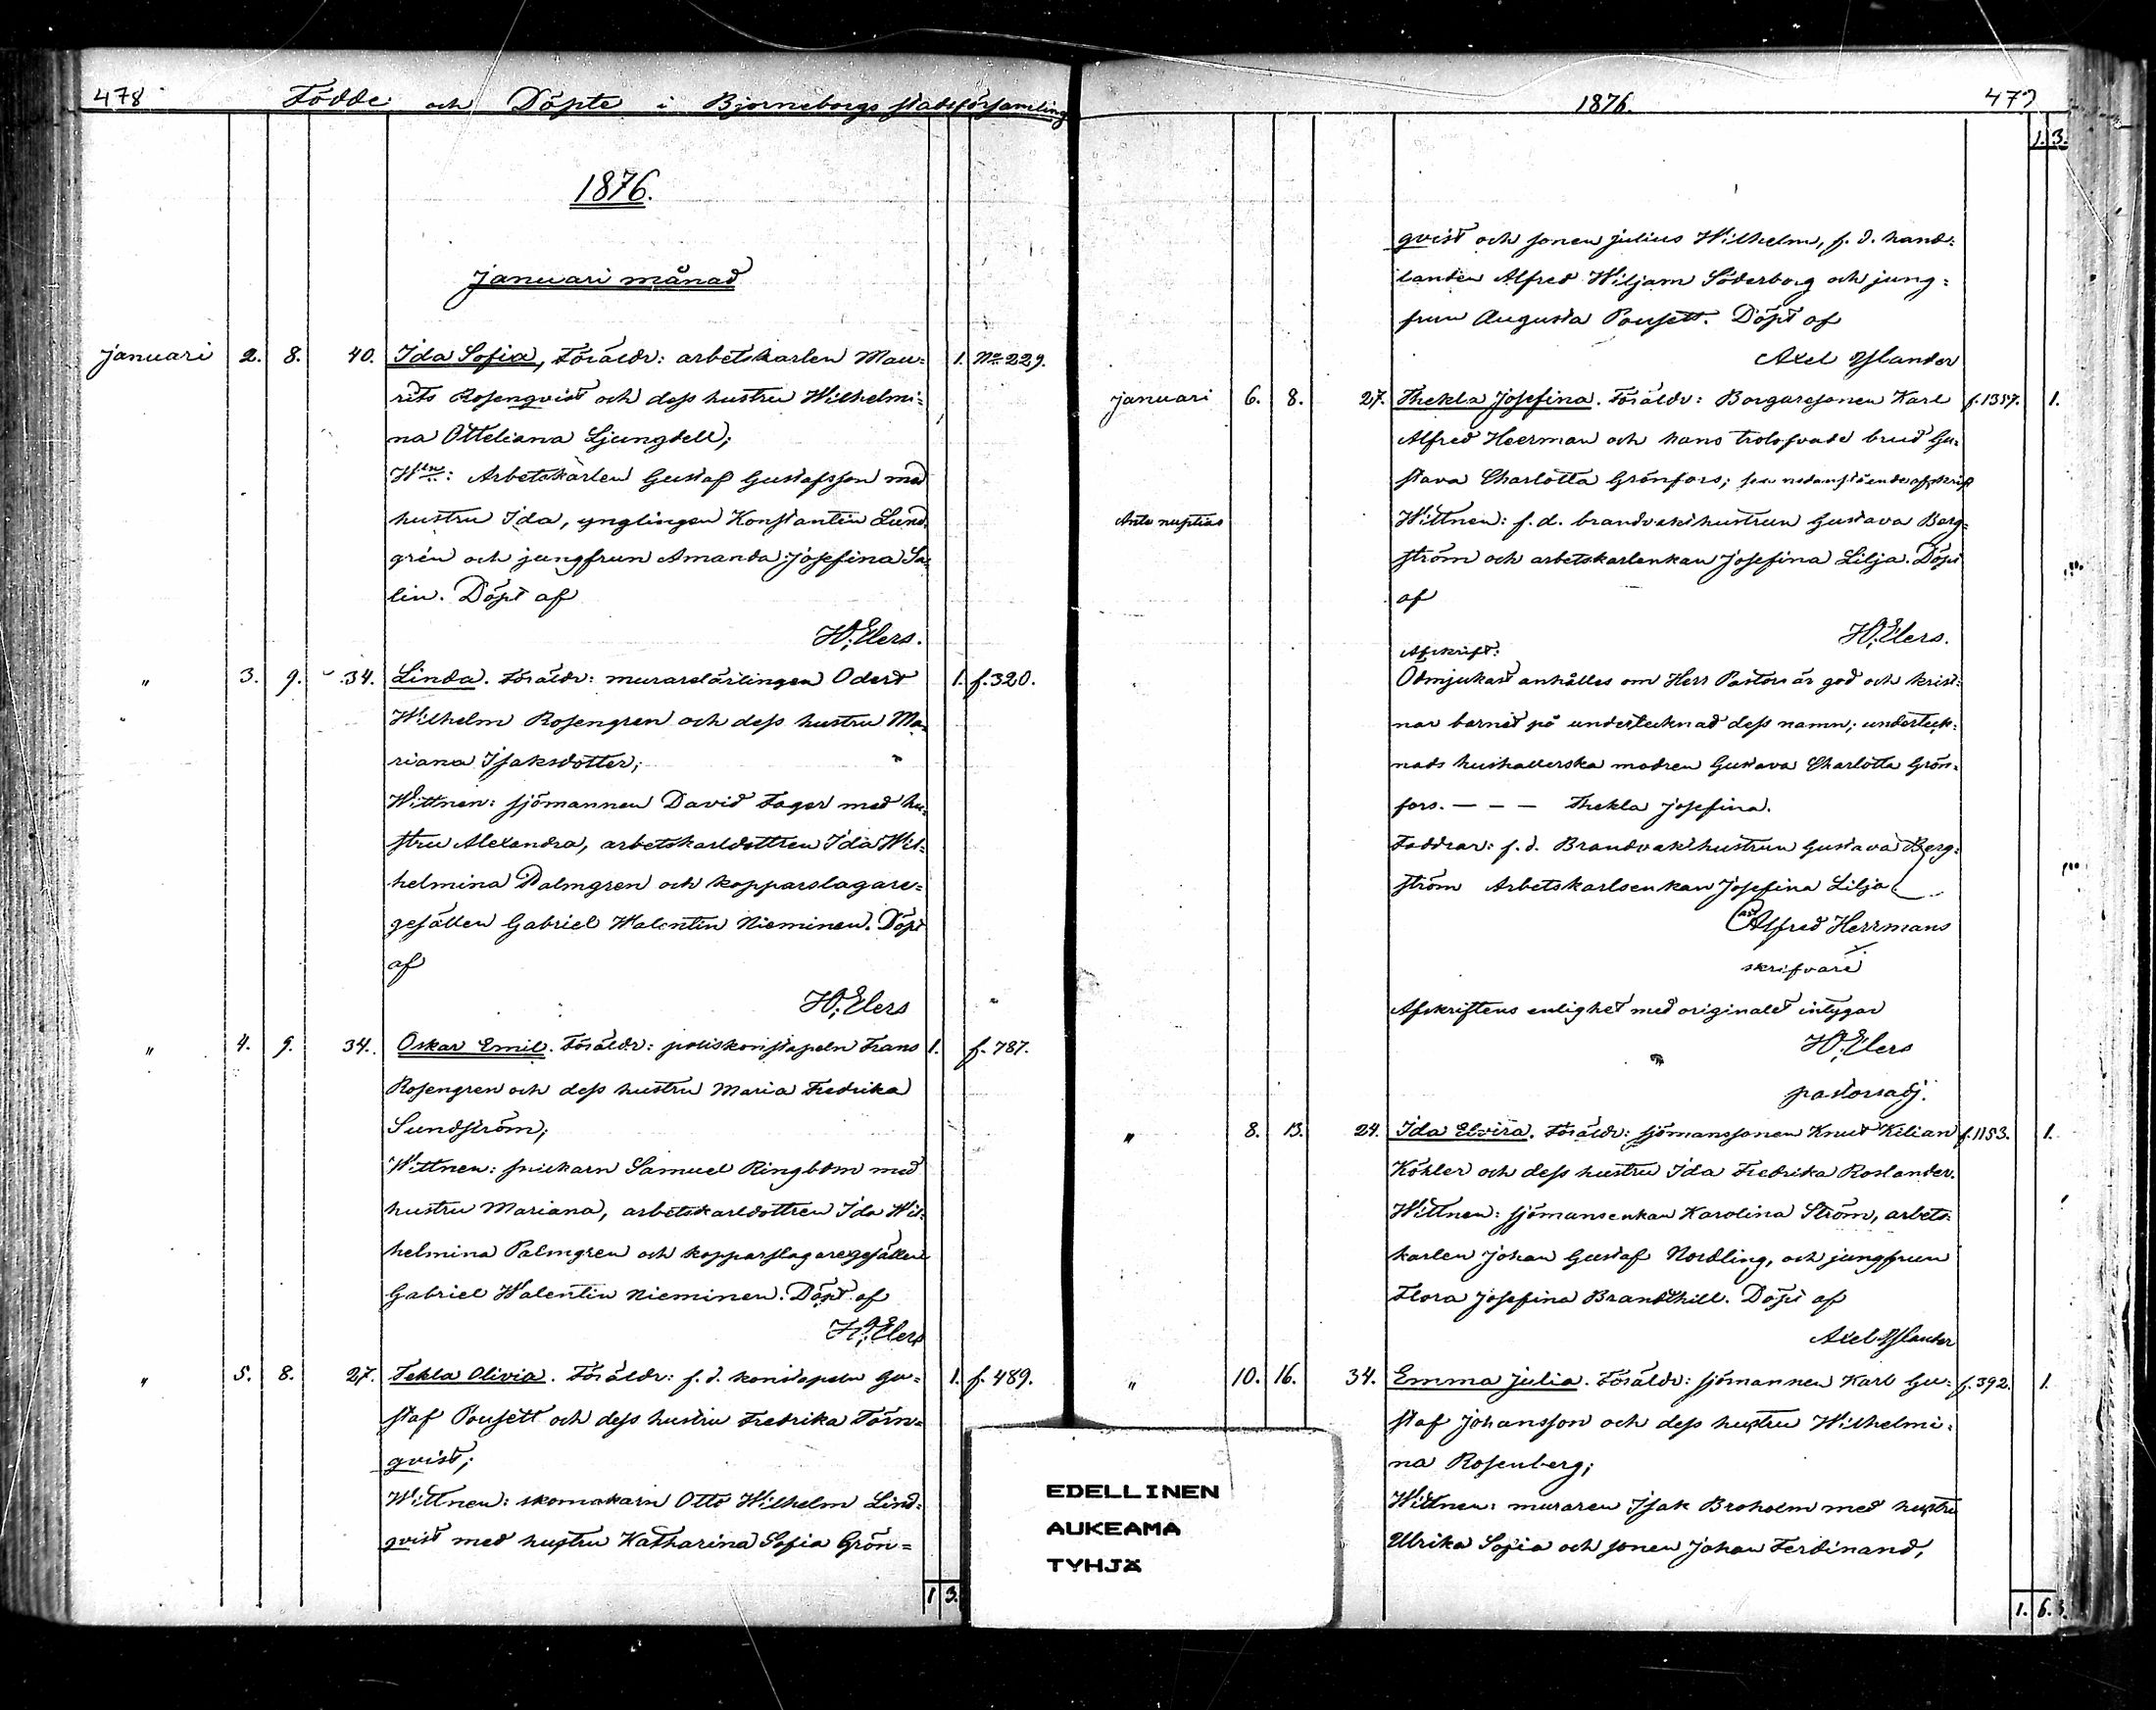 478 Födde och Döpte i Bjorneborgs stadsförsamling
1876.
Januari månad
Januari 2. 8. 40. Ida Sofia, Föräldr: arbetskarlen Mau= 1. No 229.
rits Rosenqvist och dess hustru Wilhelmi=
na Otteliana Ljungdell;
Wtn: Arbetskarlen Gustaf Gustafsson med
hustru Ida, ynglingen Konstantin Lund
grén och jungfrun Amanda Josefina Sa
lin. Döpt af
H. Elers.
" 3. 9. 34. Linda. Föräldr: murarelärlingen Odert 1. f. 320.
Wilhelm Rosengren och dess hustru Ma
riana Isaksdotter;
Wittnen: sjömannen David Fager med hu
stru Alexandra, arbetskarldottren Ida Wil=
helmina Palmgren och kopparslagare=
gesällen Gabriel Walentin Nieminen. Döpt
af
H. Elers
" 4. 9. 34. Oskar Emil. Föräldr: poliskonstapeln Frans 1. f. 787.
Rosengren och dess hustru Maria Fredrika
Sundström;
Wittnen: snickarn Samuel Ringbom med
hustru Mariana, arbetskarldottren Ida Wil=
helmina Palmgren och kopparslagaregesällen
Gabriel Walentin Nieminen. Döpt af
H. Elers
" 5. 8. 27. Tekla Olivia. Föräldr: f. d. konstapeln Gu= 1. f. 489.
staf Pousett och dess hustru Fredrika Törn=
qvist;
Wittnen: skomakarn Otto Wilhelm Lind=
qvist med hustru Katharina Sofia Grön=
1 3.
EDELLINEN
AUKEAMA
TYHJÄ
1876. 479
1. 3.
qvist och sonen Julius Wilhelm, f. d. hand=
landen Alfred Wiljam Söderborg och jung=
frun Augusta Pousett. Döpt af
Axel Yslander
Januari 6. 8. 27. Thekla Josefina. Föräldr: Borgaresonen Karl f. 1357. 1.
Alfred Heerman och hans trolofvade brud Gu=
stava Charlotta Grönfors; se nedanstående afskrift
Ante nuptias Wittnen: f. d. brandvaktshustrun Gustava Berg=
ström och arbetskarlenkan Josefina Lilja. Döpt
af
H. Elers.
Afskrift:
Ödmjukast anhålles om Herr Pastorn är god och krist=
nar barnet på undertecknad dess namn; underteck=
nads hushållerska modren Gustava Charlotta Grön=
fors. — — — Thekla Josefina.
Faddrar: f. d. Brandvaktshustrun Gustava Berg=
ström Arbetskarlsenkan Josefina Lilja
Alfred Herrmans
skrifvare
Afskriftens enlighet med originalet intygar
H. Elers
pastorsadj.
" 8. 13. 24. Ida Elvira. Föräldr: sjömanssonen Knut Kilian f. 1153. 1.
Köhler och dess hustru Ida Fredrika Roslander.
Wittnen: sjömansenkan Karolina Ström, arbets=
karlen Johan Gustaf Nordling, och jungfrun
Flora Josefina Brandthill. Döpt af
Axel Yslander
" 10. 16. 34. Emma Julia. Föräldr: sjömannen Karl Gu= f. 392. 1.
staf Johansson och dess hustru Wilhelmi=
na Rosenberg;
Wittnen: muraren Isak Broholm med hustru
Ulrika Sofia och sonen Johan Ferdinand,
1. 6.